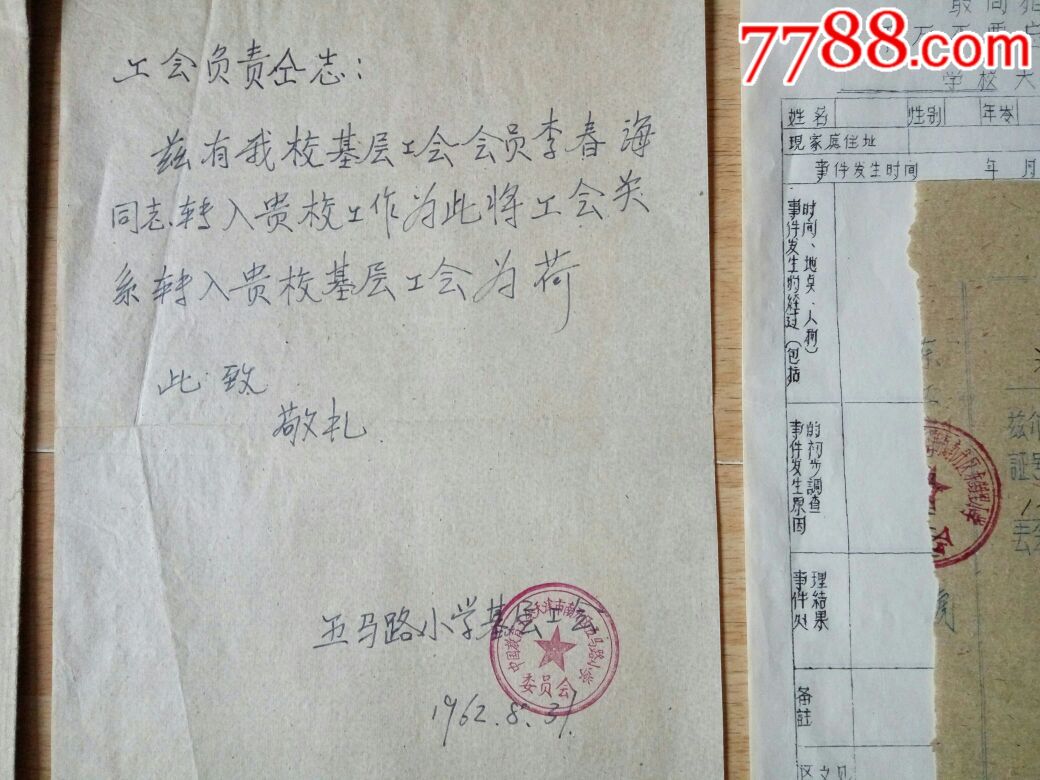 工会负责仝志：
兹有我校基层工会会员李春海
同志转入贵校工作为此将工会关
系转入贵校基层工会为荷
此致
敬礼
五马路小学基层工会
委员会
1962.8.31
7788.com
学校大
姓名 性别 年岁
現家庭住址
事件发生时间 年 月
事件发生的经过（包括
时间、地点、人物）
事件发生原因
的初步調查
事件处
理结果
备註
兹介
証号